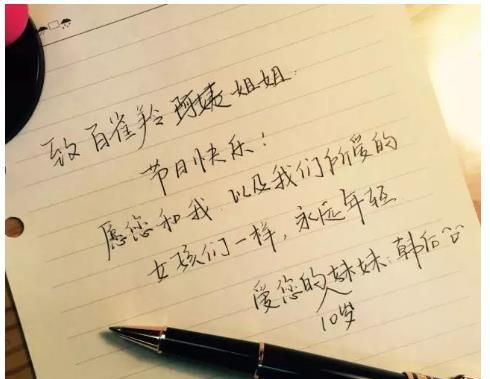 致百雀羚阿姨姐姐:
节日快乐!
愿您和我、以及我们所爱的
女孩们一样,永远年轻
爱您的妹妹:韩后
10岁